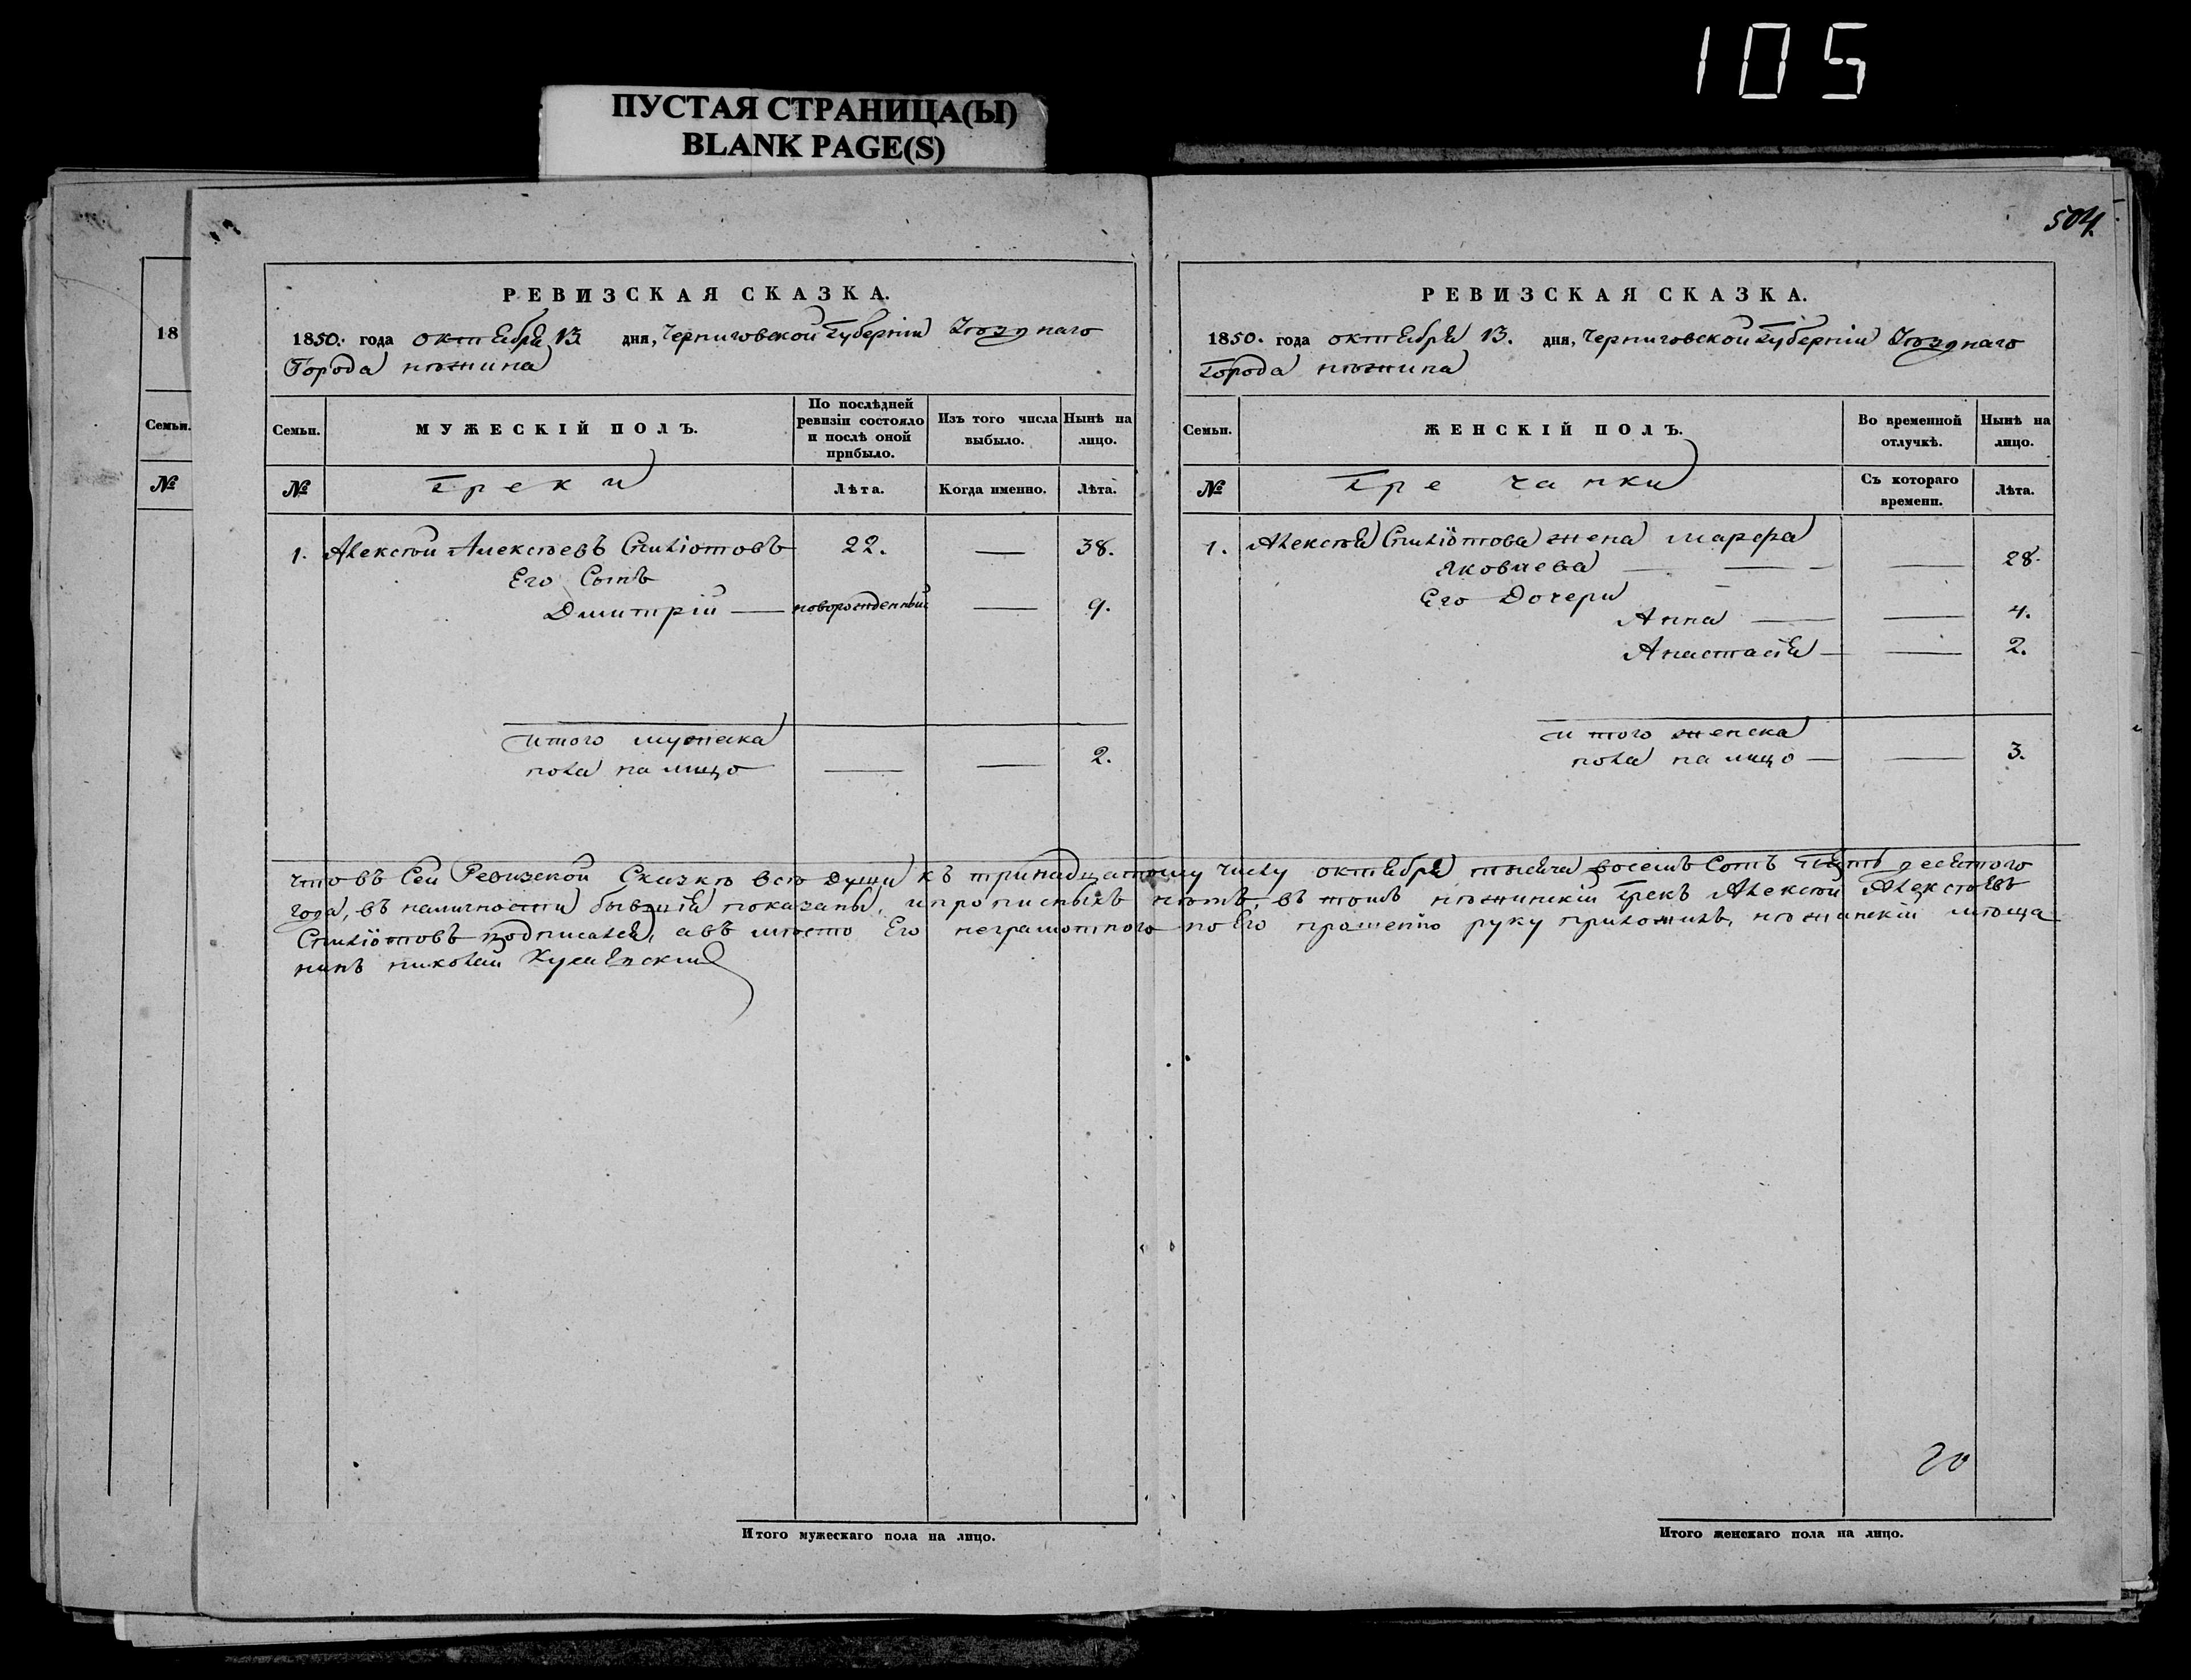 105
ПУСТАЯ СТРАНИЦА(Ы)
BLANK PAGE(S)
18
Семьи.
№
РЕВИЗСКАЯ СКАЗКА.
1850. года октября 13 дня, Черниговской Губерніи Уѣзднаго
Города нѣжина
Семьи.
МУЖЕСКІЙ ПОЛЪ.
По послѣдней ревизіи состояло и послѣ оной прибыло.
Изъ того числа выбыло.
Нынѣ на лицо.
№
Греки
Лѣта.
Когда именно.
Лѣта.
1. Алексѣй Алексѣевъ Спиліотовъ 22. — 38.
Его Сынъ
Дмитрій — новорожденный — 9.
Итого мужеска
пола на лицо — — 2.
504.
РЕВИЗСКАЯ СКАЗКА.
1850. года октября 13. дня, Черниговской Губерніи Уѣзднаго
Города нѣжина
Семьи.
ЖЕНСКІЙ ПОЛЪ.
Во временной отлучкѣ.
Нынѣ на лицо.
№
Гречанки
Съ котораго времени.
Лѣта.
1. Алексѣя Спиліотова жена Марфа
Яковлева — — — 28.
Его Дочери
Анна — — 4.
Анастасія — — 2.
Итого женска
пола на лицо — — 3.
что въ Сей Ревизской Сказкѣ всѣ Души къ тринадцатому числу октября тысяча восемь Сотъ Пятьдесятого
года, въ наличности бывшія показаны, и прописныхъ нѣтъ, въ томъ нѣжинскій Грекъ Алексѣй Алексѣевъ
Спиліотовъ подписался, а въ мѣсто Его неграмотного по Его прошенію руку приложилъ, нѣжинскій мѣща
нинъ николай
20
Итого мужескаго пола на лицо.
Итого женскаго пола на лицо.